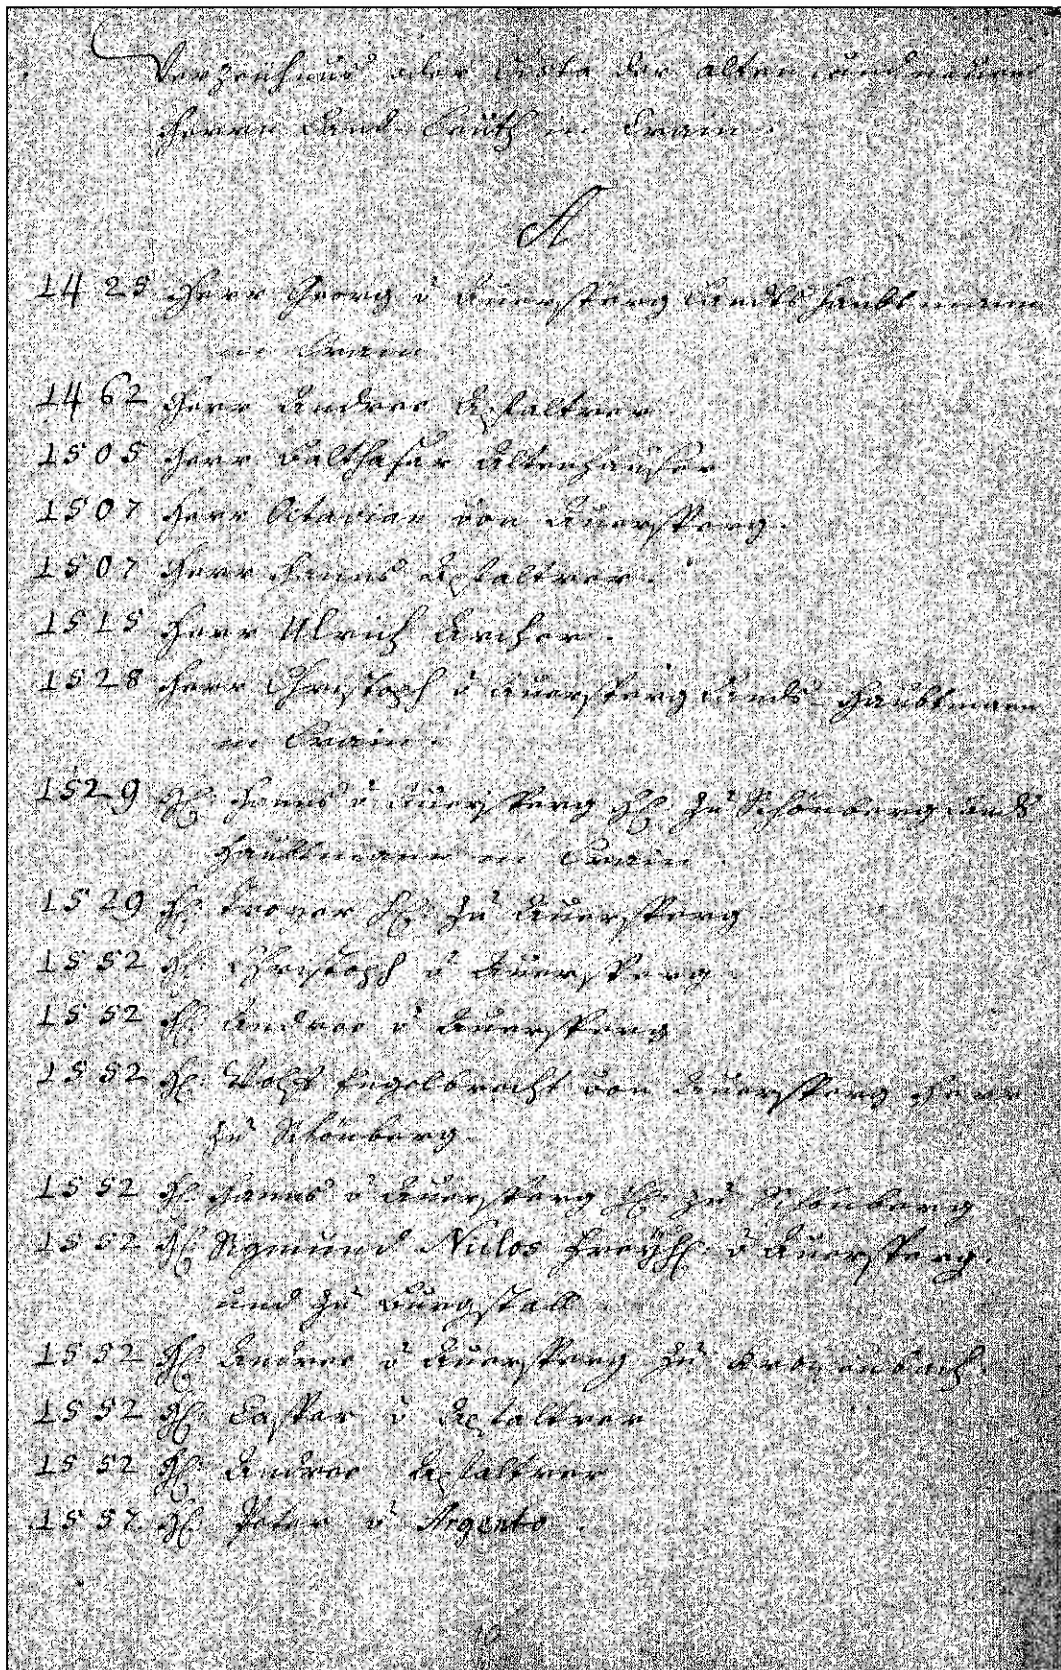 Verzeichnus oder Liste der alten und neuen
Herrn Land Leüth in Crain.
A
1425 Herr Georg v Auersperg Landts Haubtmann
in Crain
1462 Herr Andree Apfaltrer
1505 Herr Balthasar Altenhauser
1507 Herr Octavian von Auersperg.
1507 Herr Hanns Apfaltrer.
1515 Herr Ulrich
1528 Herr Christoph v Auersperg Lands Haubtmann
in Crain.
1529 H: Hanns v Auersperg H: zu Schönberg Lands
Haubtmann in Crain
1529 H: Troyan H: zu Auersperg
1552 H: Christoph v Auersperg.
1552 H: Andree v Auersperg
1552 H: Wolff Engelbrecht von Auersperg Herr
zu Schönberg.
1552 H: Hanns v Auersperg H: zu Schönberg
1552 H: Sigmund Niclos Freyh: v Auersperg.
und zu Burgstall
1552 H: Andree v Auersperg zu
1552 H: Casper v Apfaltrer
1552 H: Andree Apfaltrer
1557 H: Peter v Argento.